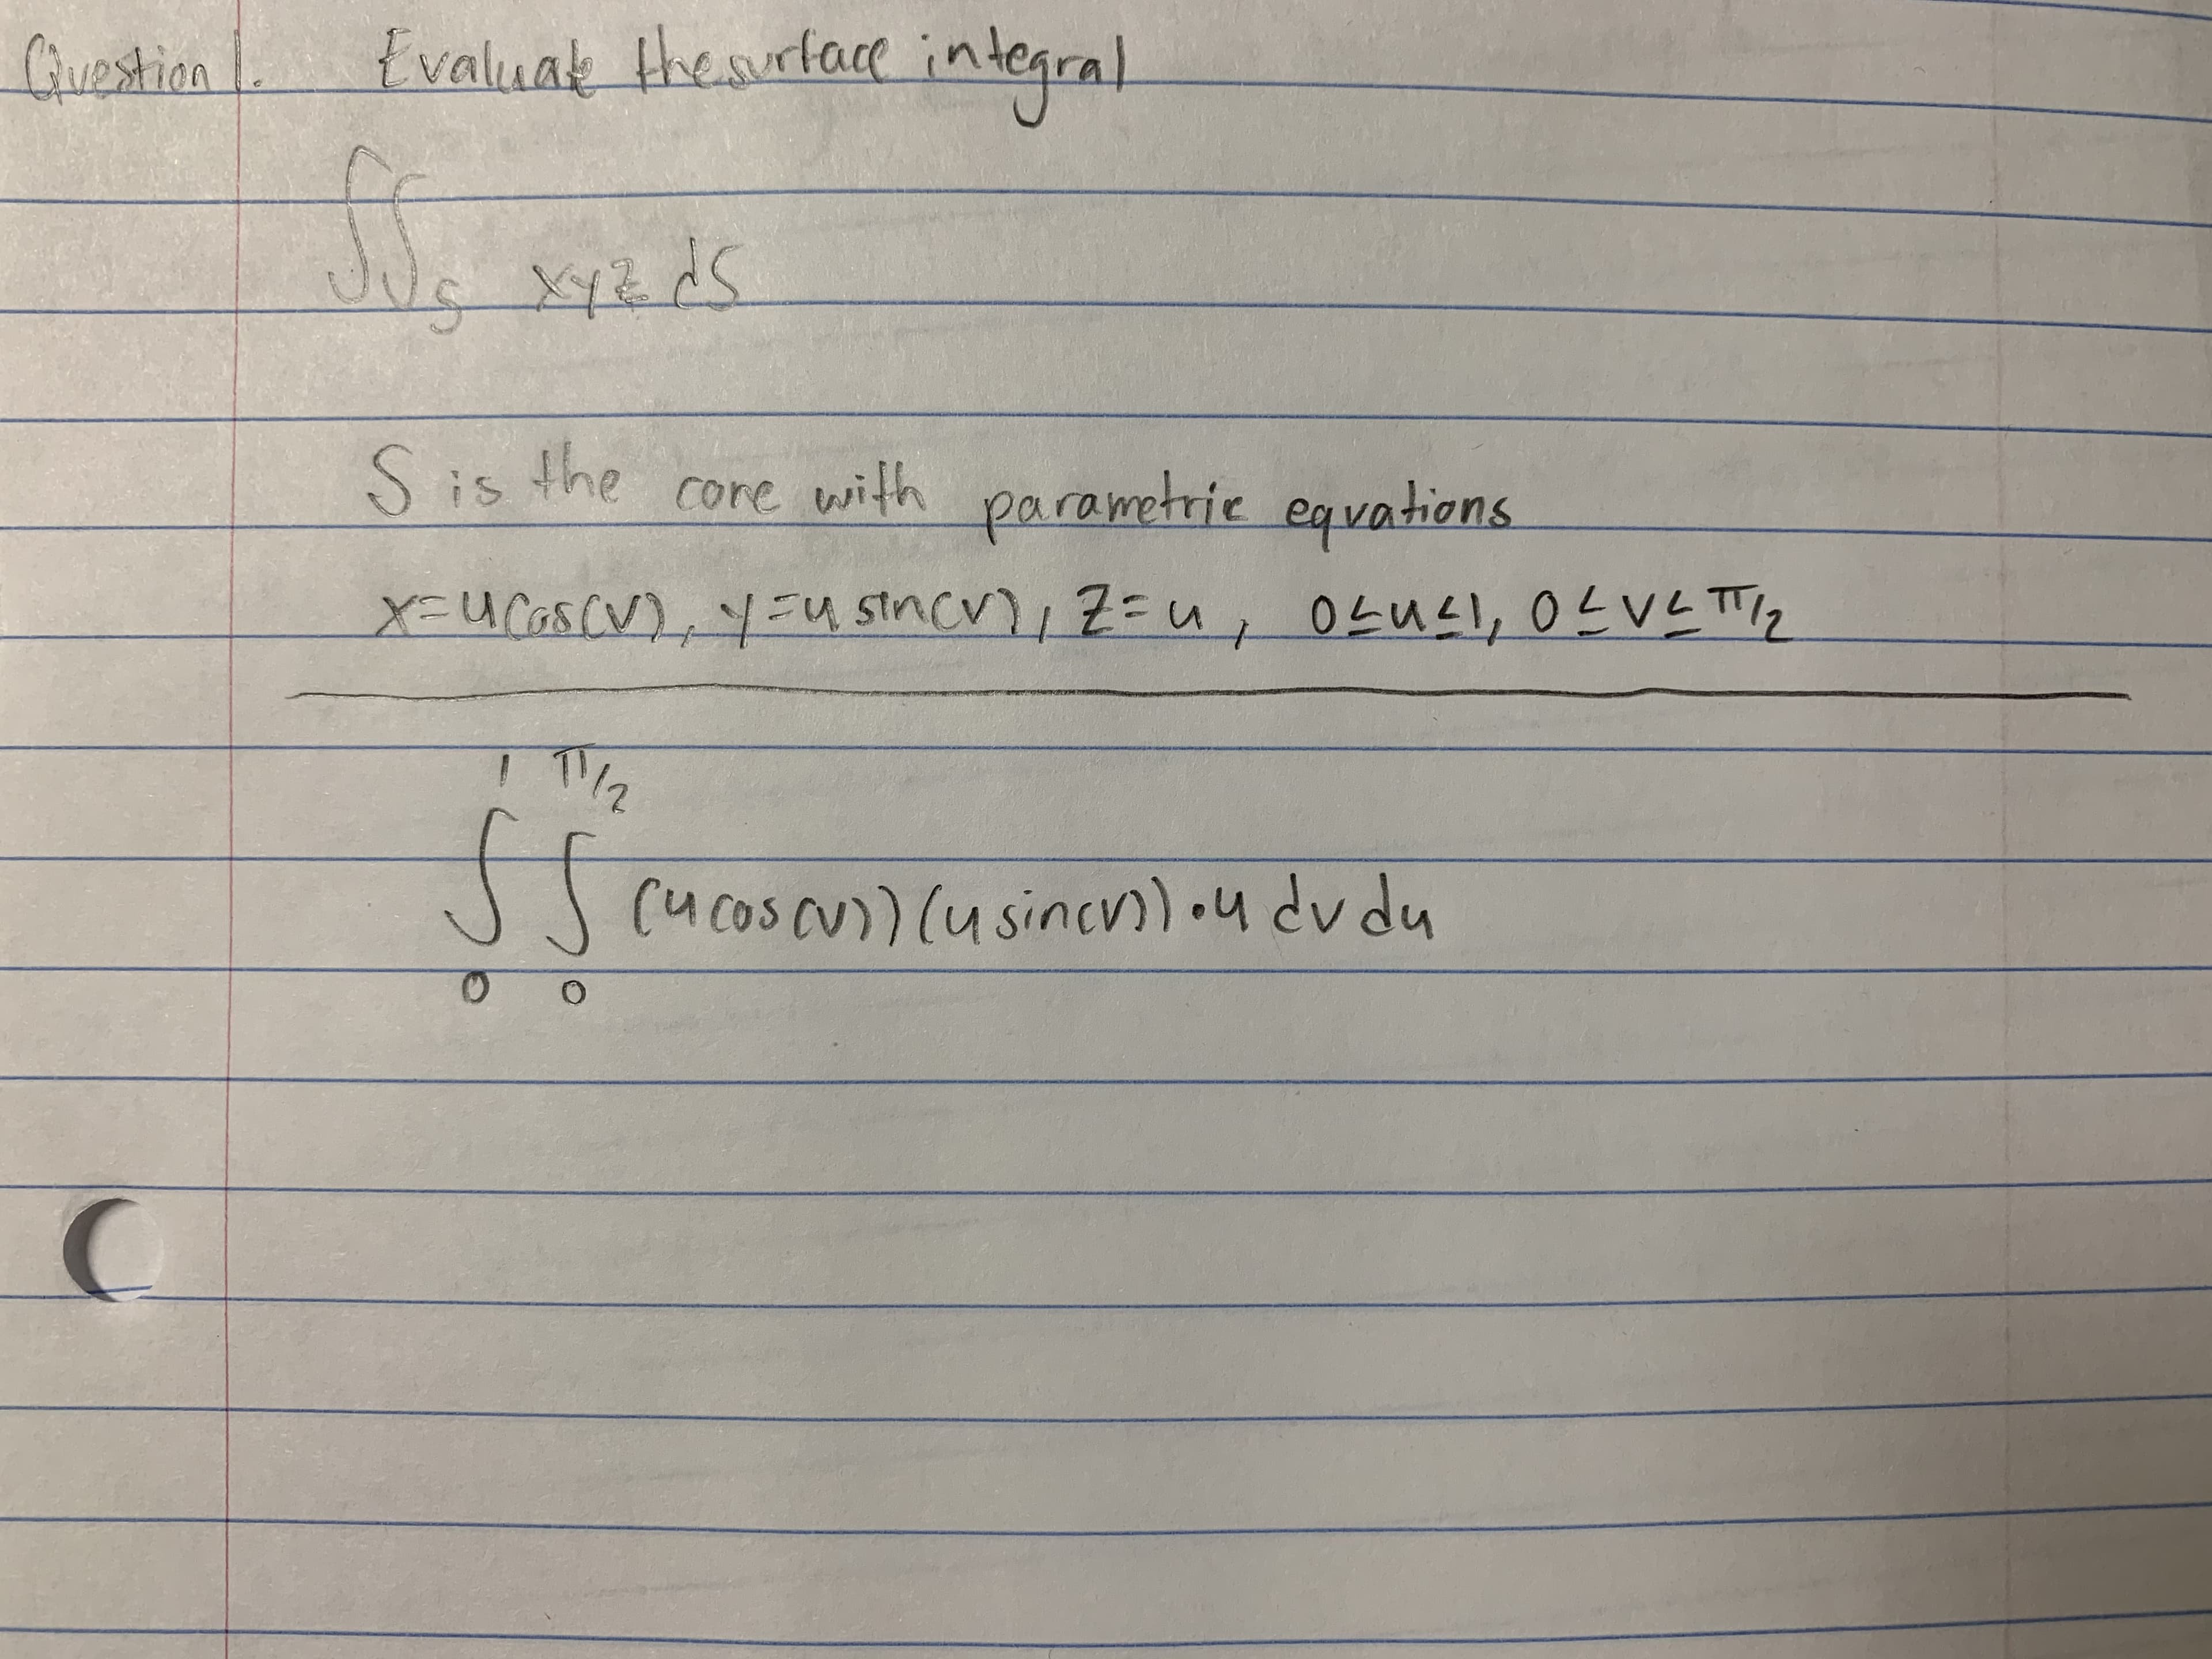 Question 1. Evaluate the surface integral
∬_S xyz dS
S is the cone with parametric equations
x=u cos(v), y=u sin(v), z=u, 0≤u≤1, 0≤v≤π/2
∫_0^1 ∫_0^{π/2} (u cos(v))(u sin(v))·u dv du